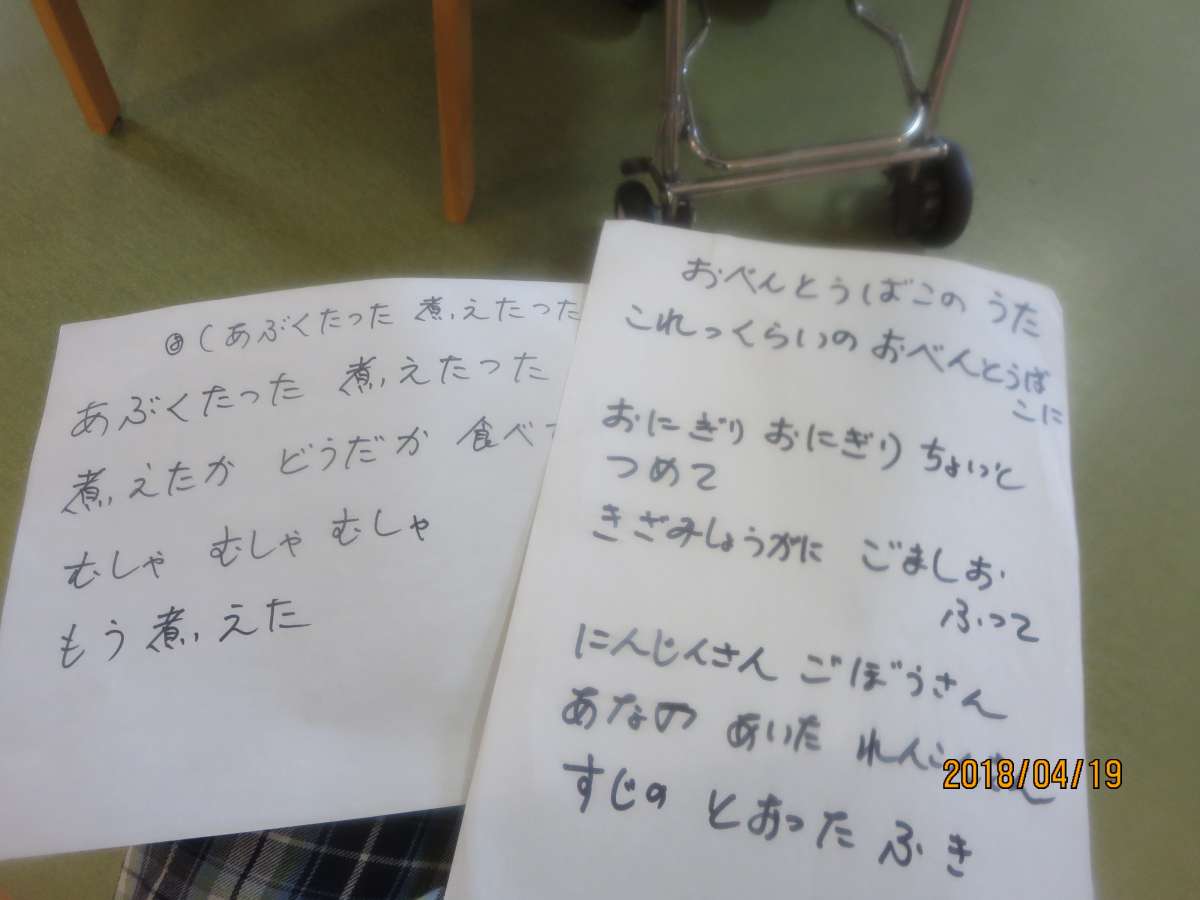 あ(あぶくたった 煮えたった
あぶくたった 煮えたった
煮えたか どうだか 食べ
むしゃ むしゃ むしゃ
もう煮えた
おべんとうばこの うた
これっくらいの おべんとうば
こに
おにぎり おにぎり ちょいと
つめて
きざみしょうがに ごましお
ふって
にんじんさん ごぼうさん
あなの あいた れんこんさん
すじの とおった ふき
2018/04/19